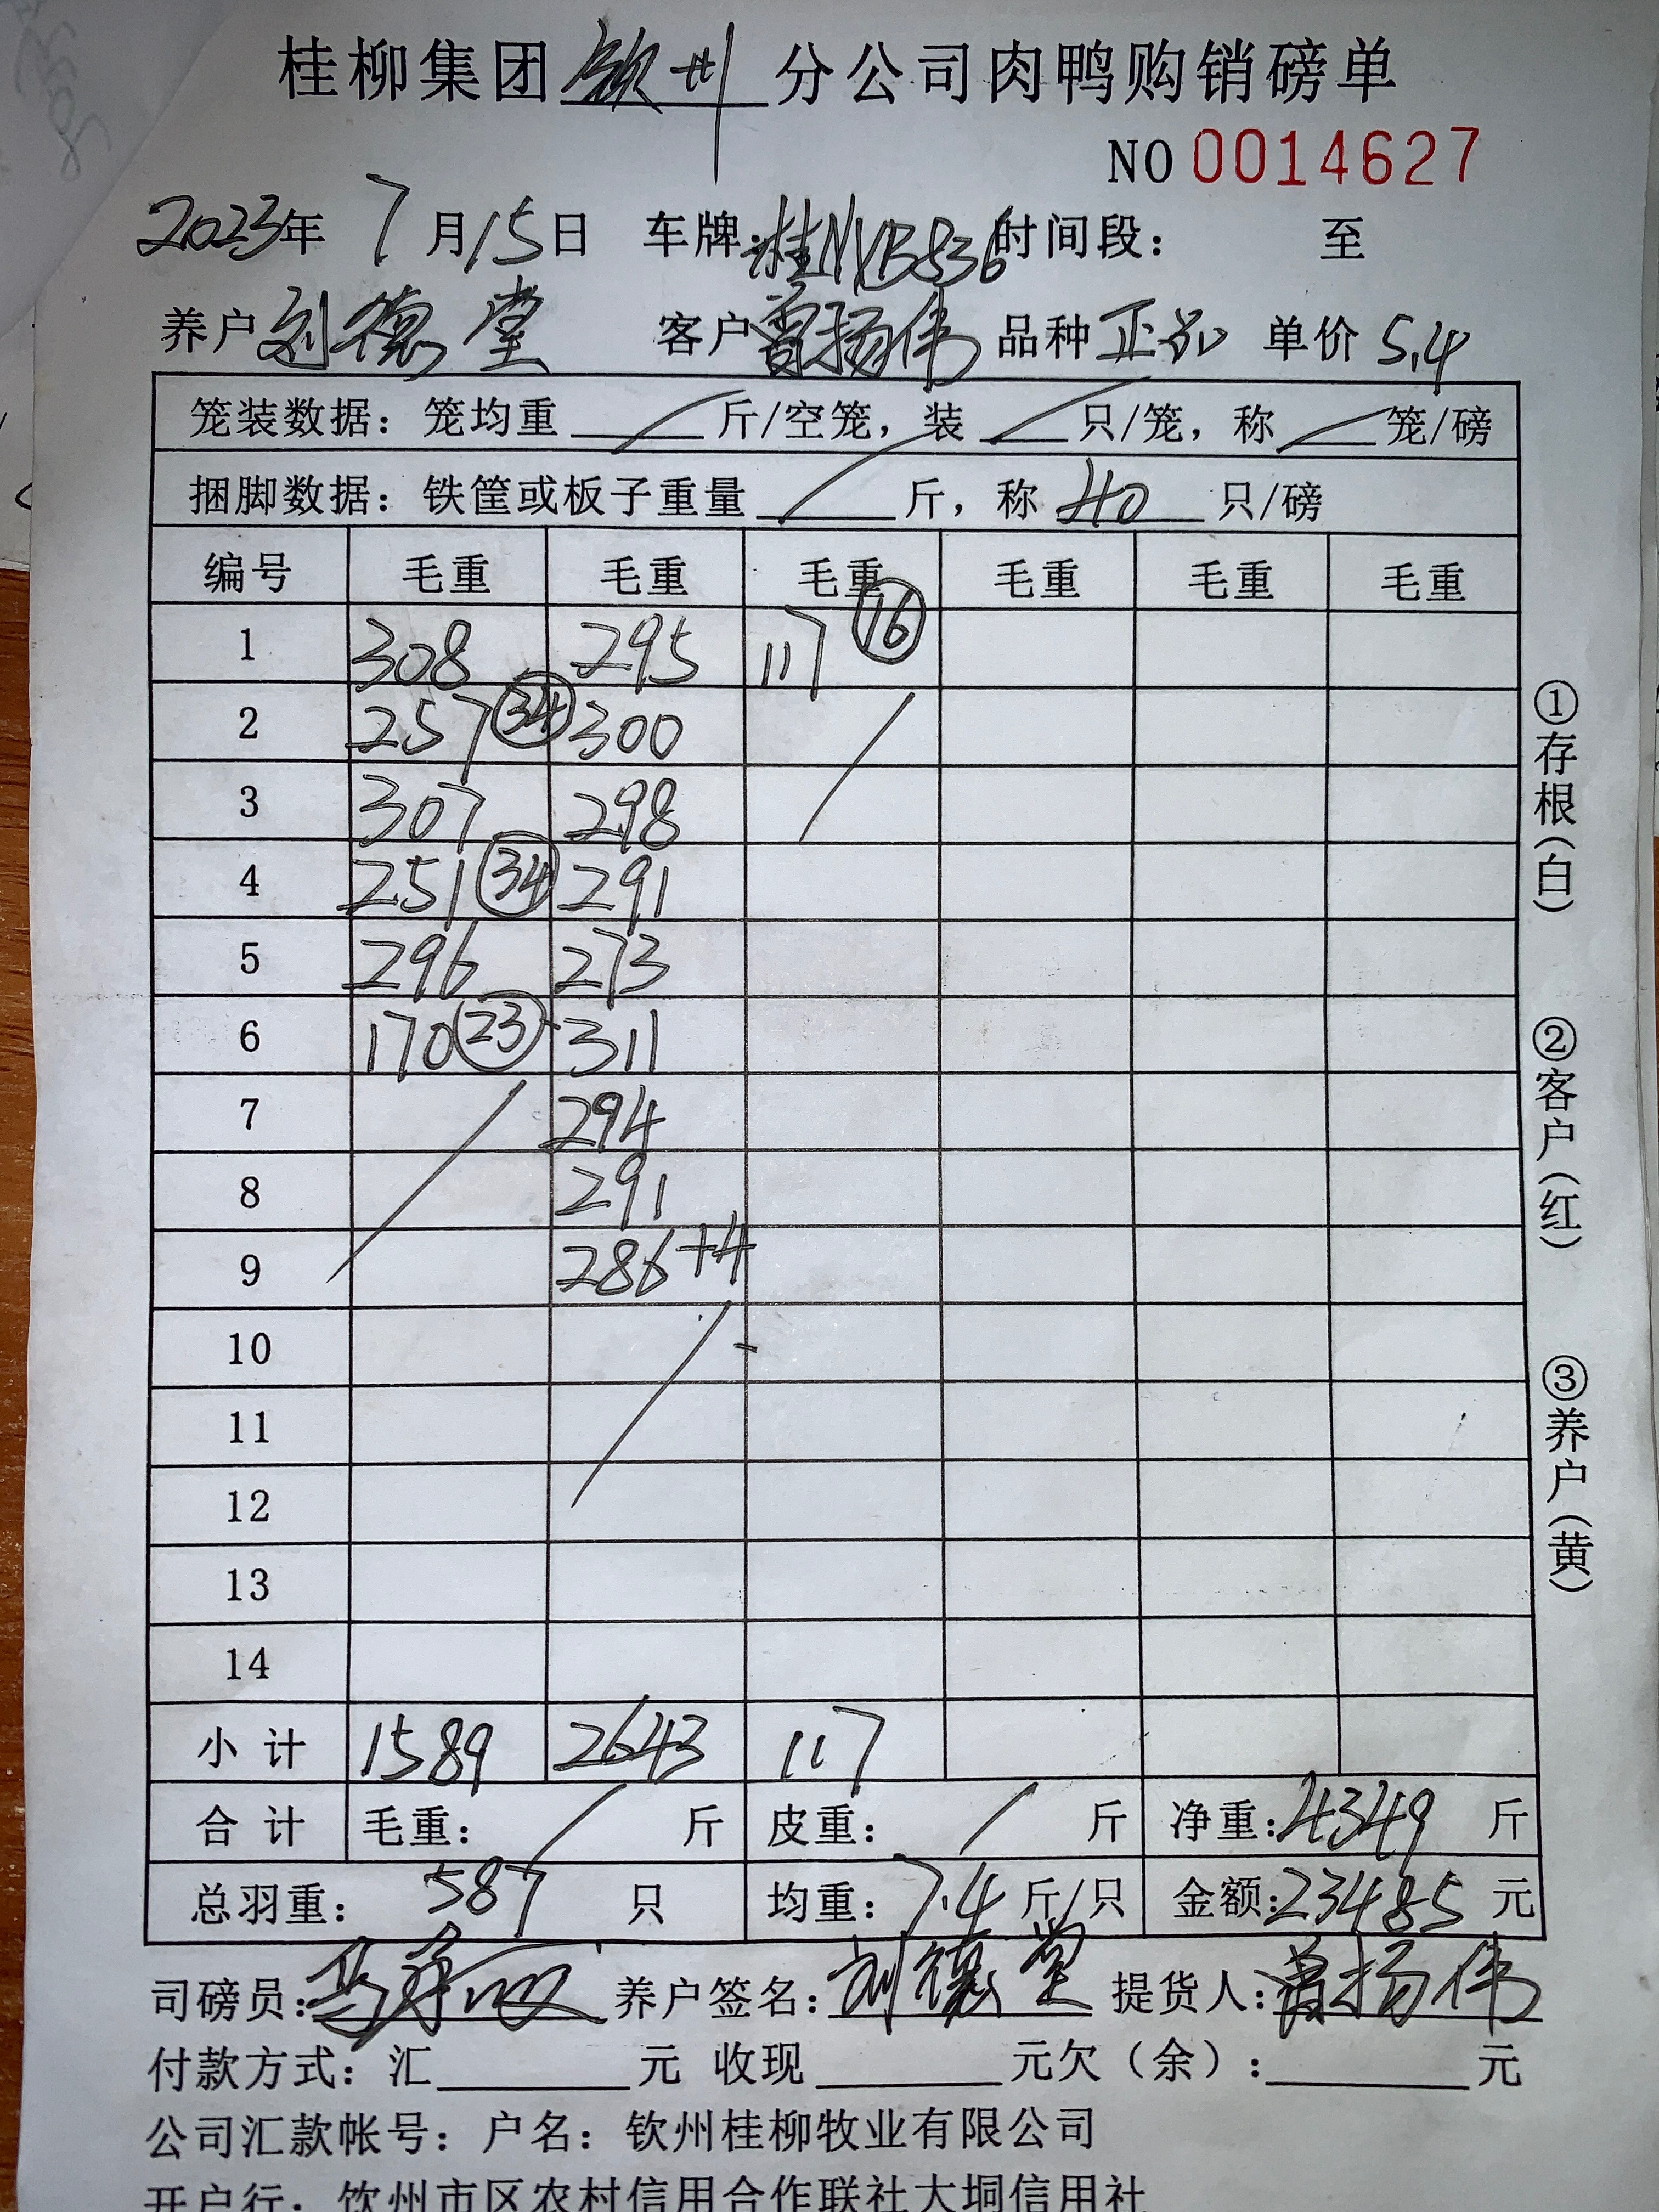 桂柳集团 钦州 分公司肉鸭购销磅单
NO 0014627
2023年 7月15日 车牌:桂NXB536 时间段: 至
养户 刘德堂 客户 曾扬伟 品种 正品 单价 5.4
笼装数据: 笼均重 斤/空笼, 装 只/笼, 称 笼/磅
捆脚数据: 铁筐或板子重量 斤, 称 40 只/磅
编号 毛重 毛重 毛重 毛重 毛重 毛重
1 308 295 117 16
2 257 34 300
3 307 298
4 251 34 291
5 296 273
6 170 23 311
7 294
8 291
9 286+4
10
11
12
13
14
小计 1589 2643 117
合计 毛重: 斤 皮重: 斤 净重:4349 斤
总羽重: 587 只 均重:7.4 斤/只 金额:23485 元
司磅员: 养户签名:刘德堂 提货人:曾扬伟
付款方式: 汇 元 收现 元欠(余): 元
公司汇款帐号: 户名: 钦州桂柳牧业有限公司
开户行: 钦州市区农村信用合作联社大垌信用社
①存根(白)
②客户(红)
③养户(黄)